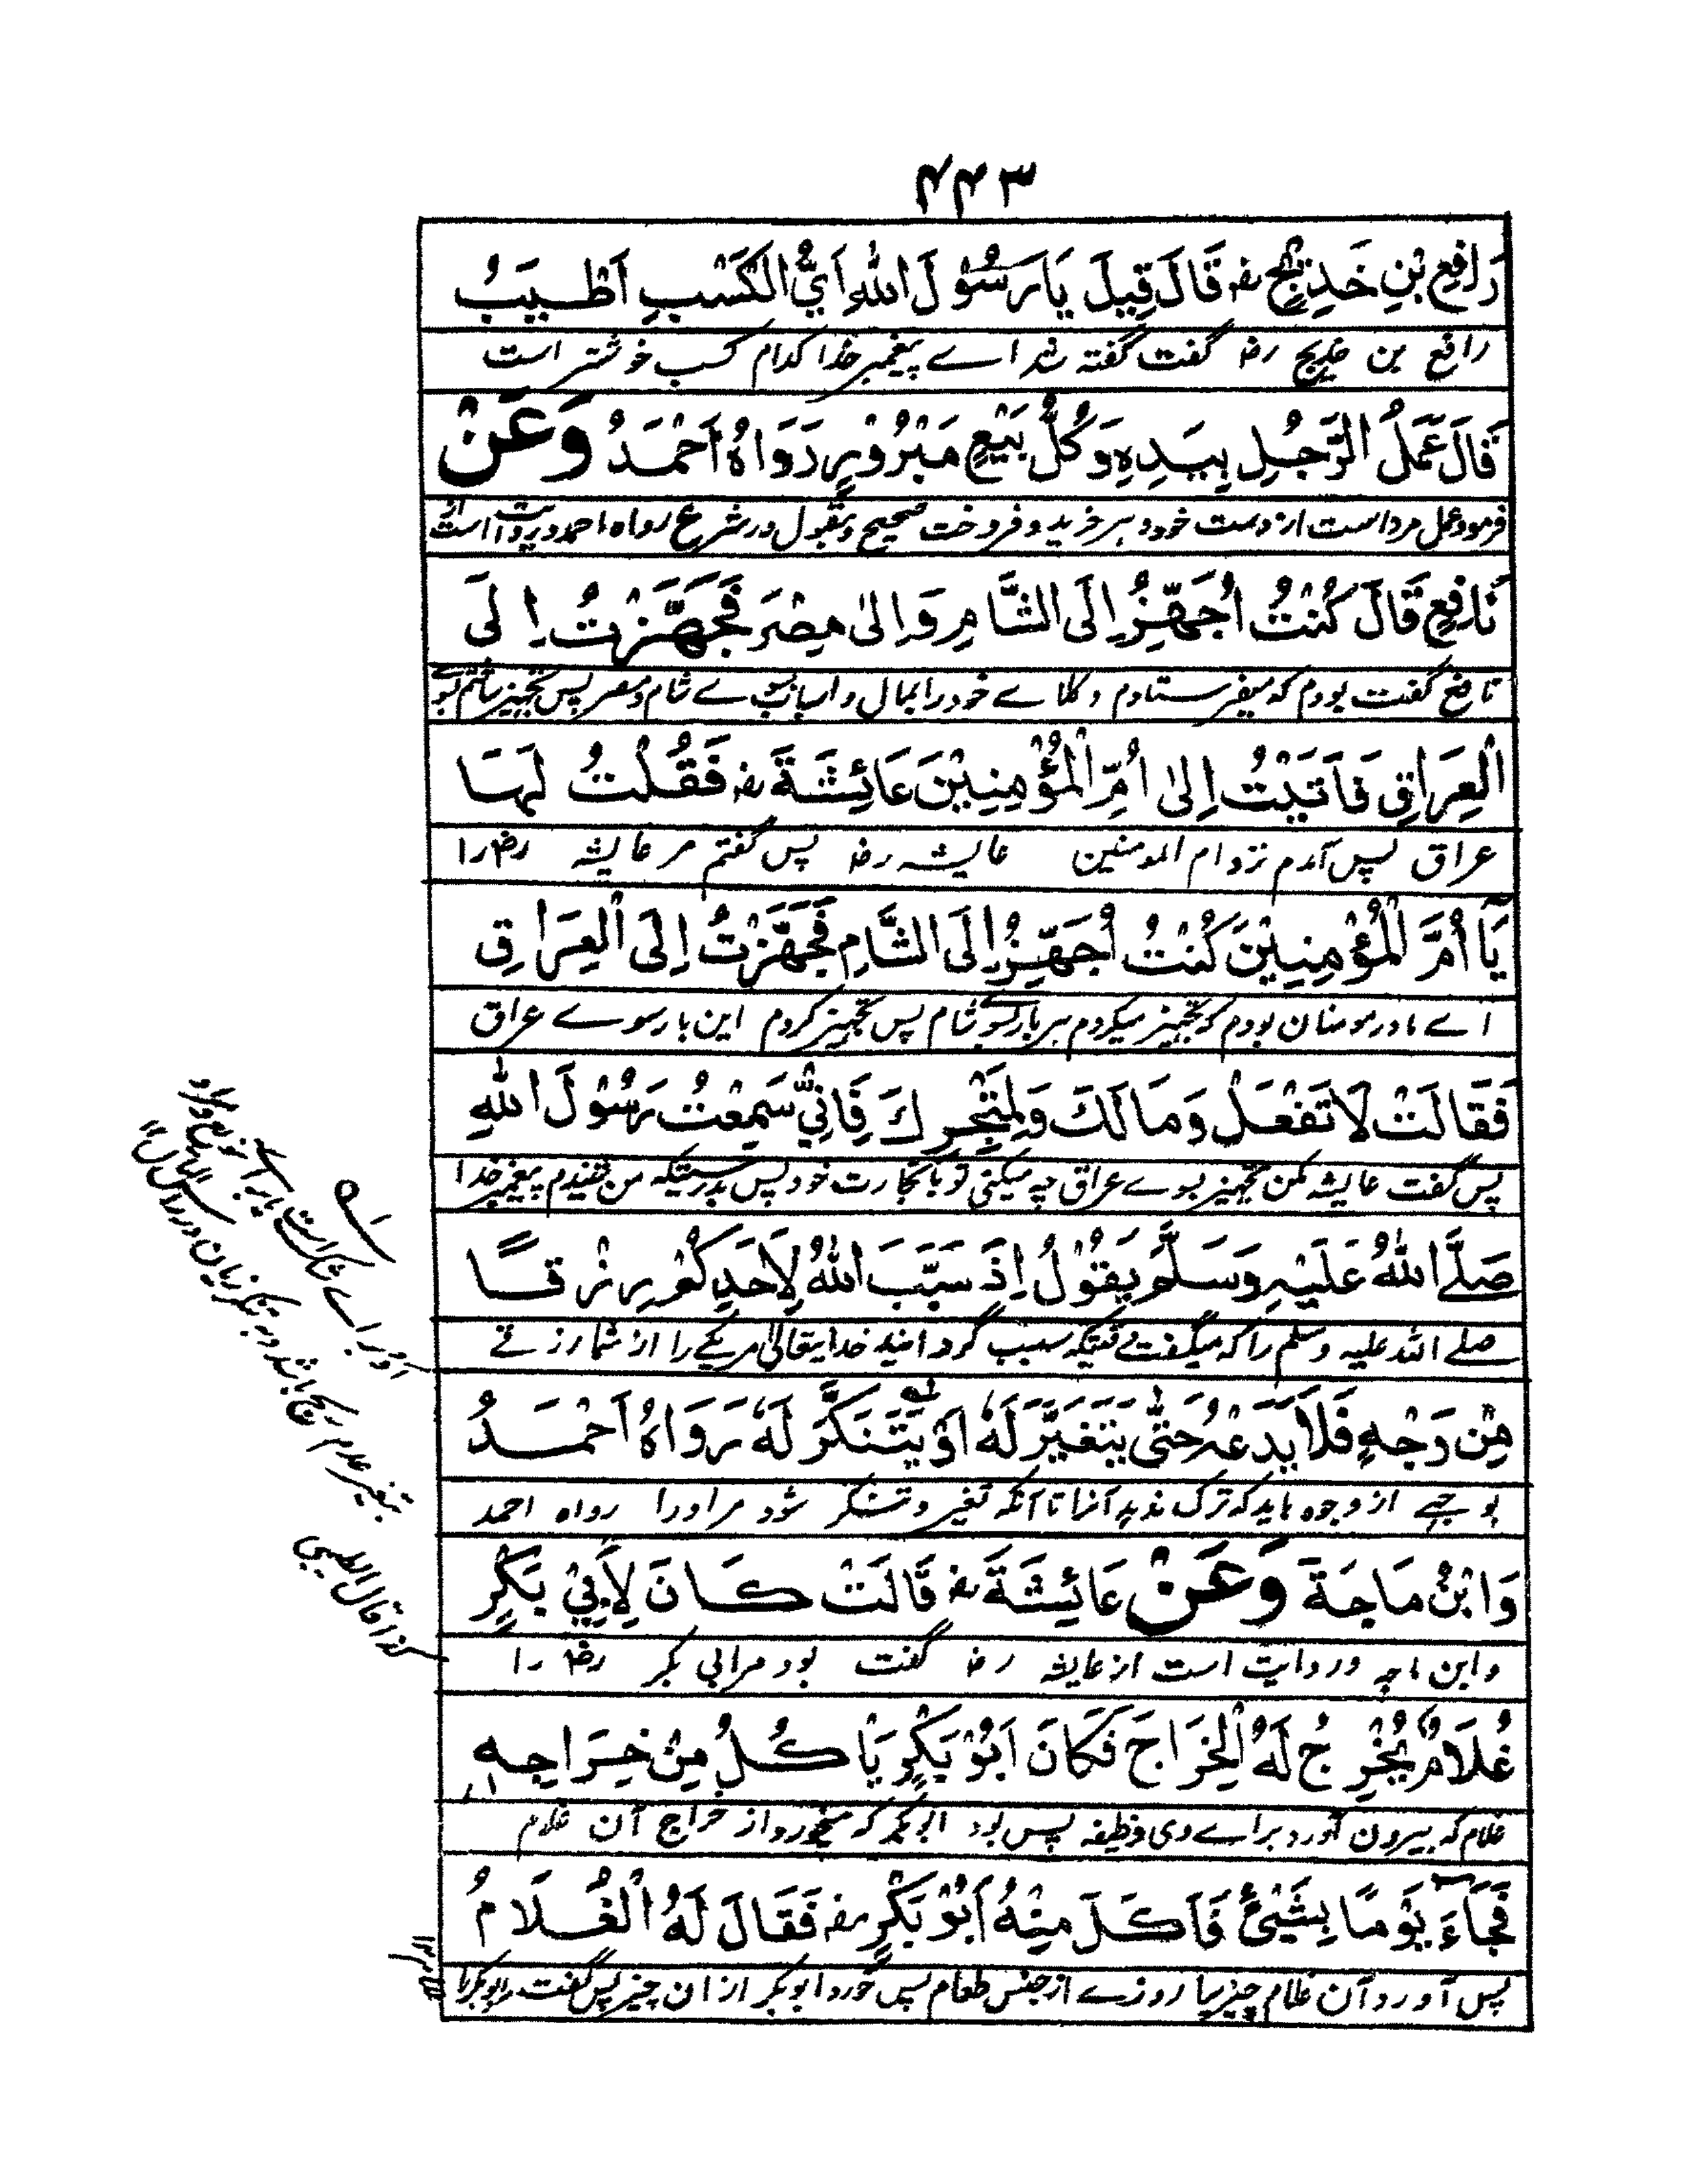 ۴۴۳
رَافِعِ بْنِ خَدِيْجٍ رض قَالَ قِيلَ يَا رَسُوْلَ اللهِ اَيُّ الْكَسْبِ اَطْيَبُ
رافع بن خدیج رض گفت گفته شد اے پیغمبر خدا کدام کسب خوشتر است
قَالَ عَمَلُ الرَّجُلِ بِيَدِهِ وَكُلُّ بَيْعٍ مَبْرُوْرٍ رَوَاهُ اَحْمَدُ وَعَنْ
فرمود عمل مرد است از دست خود و هر خرید و فروخت صحیح و مقبول در شرع رواه احمد و روایت است از
نَافِعٍ قَالَ كُنْتُ اُجَهِّزُ اِلَى الشَّامِ وَاِلٰى مِصْرَ فَجَهَّزْتُ اِلَى
نافع گفت بودم که میفرستادم وکلاے خود را بمال و اسباب بسوے شام و مصر پس تجهیز ساختم بسوے
الْعِرَاقِ فَاَتَيْتُ اِلٰى اُمِّ الْمُؤْمِنِيْنَ عَائِشَةَ رض فَقُلْتُ لَهَا
عراق پس آمدم نزد ام المومنین عایشه رض پس گفتم مر عایشه رض را
يَا اُمَّ الْمُؤْمِنِيْنَ كُنْتُ اُجَهِّزُ اِلَى الشَّامِ فَجَهَّزْتُ اِلَى الْعِرَاقِ
اے مادر مومنان بودم که تجهیز میکردم هر بار بسوے شام پس تجهیز کردم این بار سوے عراق
فَقَالَتْ لَا تَفْعَلْ وَمَا لَكَ وَلِمَتْجَرِكَ فَاِنِّيْ سَمِعْتُ رَسُوْلَ اللهِ
پس گفت عایشه مکن تجهیز بسوے عراق چه میکنی تو با تجارت خود پس بدرستیکه من شنیدم پیغمبر خدا
صَلَّے اللهُ عَلَيْهِ وَسَلَّمَ يَقُوْلُ اِذَ سَبَّبَ اللهُ لِاَحَدِكُمْ رِزْقًا
صلے الله علیه وسلم را که میگفت وقتیکه سبب گرداند خدایتعالیٰ مر یکے را از شما رزقے
مِنْ وَجْهٍ فَلَا يَدَعْهُ حَتّٰى يَتَغَيَّرَ لَهٗ اَوْ يَتَنَكَّرَ لَهٗ رَوَاهُ اَحْمَدُ
بوجهے از وجوه باید که ترک ندهد آنرا تا آنکه تغیر و تنکر شود مر او را رواه احمد
وَابْنُ مَاجَةَ وَعَنْ عَائِشَةَ رض قَالَتْ كَانَ لِاَبِيْ بَكْرٍ
و ابن ماجه و روایت است از عایشه رض گفت بود مر ابی بکر رض را
غُلَامٌ يُخْرِجُ لَهُ الْخِرَاجَ فَكَانَ اَبُوْ بَكْرٍ يَأْكُلُ مِنْ خِرَاجِهِ
غلام که بیرون آورد براے وی وظیفه پس بود ابوبکر که میخورد از خراج آن غلام
فَجَاءَ يَوْمًا بِشَيْئٍ فَاَكَلَ مِنْهُ اَبُوْ بَكْرٍ رض فَقَالَ لَهُ الْغُلَامُ
پس آورد آن غلام چیز را روزے از جنس طعام پس خورد ابوبکر از ان چیز پس گفت ابوبکر را
كذا قال الطيبي